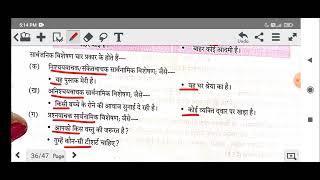 5:14 PM
बाहर कोई आदमी है।
सार्वनामिक विशेषण चार प्रकार के होते हैं—
(क) निश्चयवाचक/संकेतवाचक सार्वनामिक विशेषण; जैसे—
• यह पुस्तक मेरी है। • यह घर श्रेया का है।
(ख) अनिश्चयवाचक सार्वनामिक विशेषण; जैसे—
• किसी बच्चे के रोने की आवाज सुनाई दे रही है। • कोई व्यक्ति द्वार पर खड़ा है।
(ग) प्रश्नवाचक सार्वनामिक विशेषण; जैसे—
• आपको किस वस्तु की जरूरत है?
• तुम्हें कौन-सी टीशर्ट चाहिए?
36/47